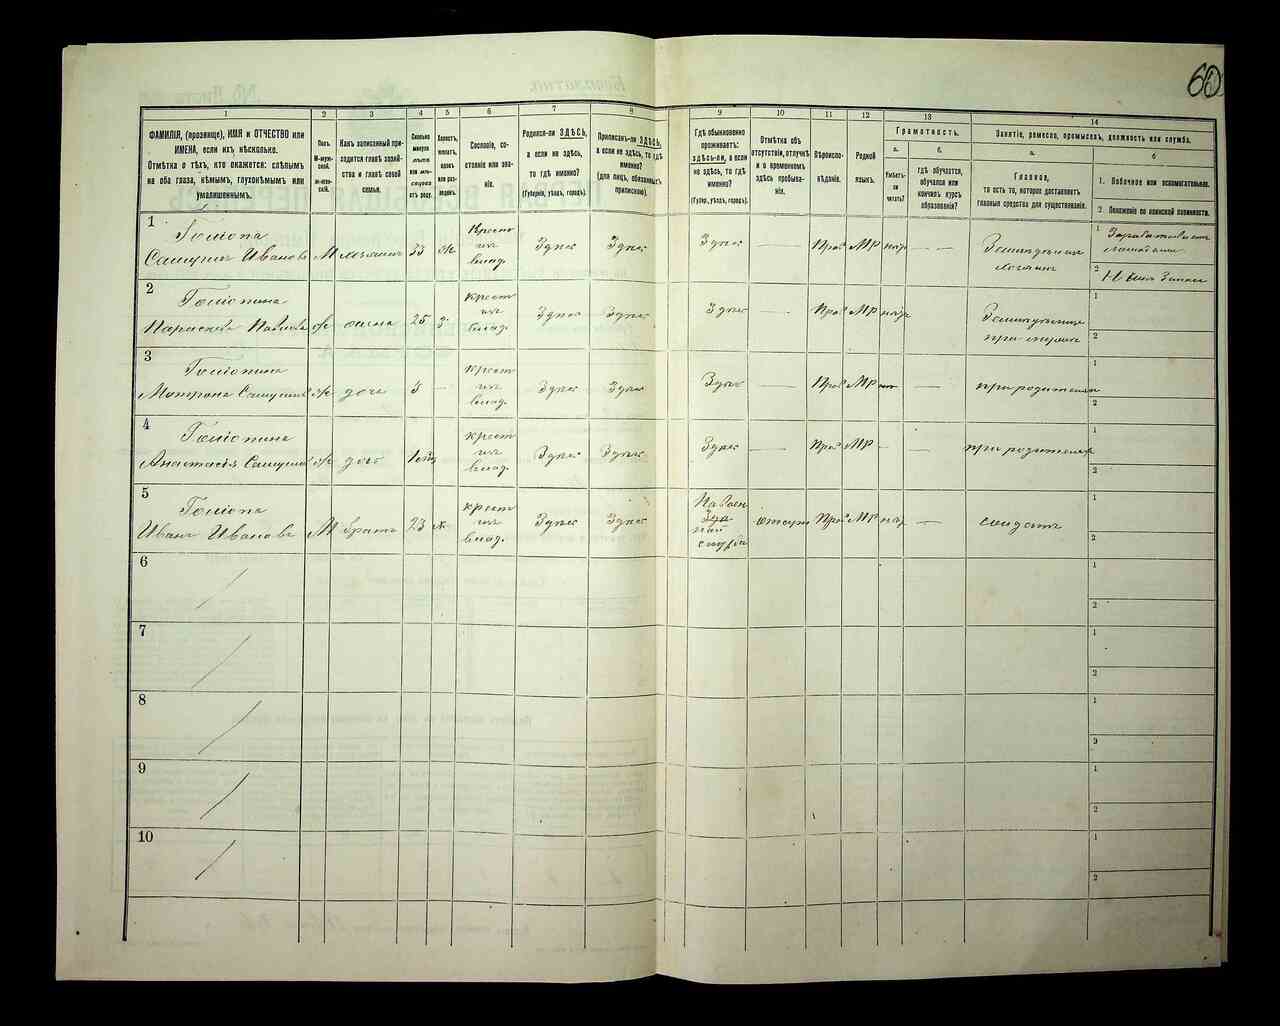 60
1
2
3
4
5
6
7
8
9
10
11
12
13
14
ФАМИЛІЯ, (прозвище), ИМЯ и ОТЧЕСТВО или
ИМЕНА, если ихъ нѣсколько.
Отмѣтка о тѣхъ, кто окажется: слѣпымъ
на оба глаза, нѣмымъ, глухонѣмымъ или
умалишеннымъ.
Полъ.
М-муж-
ской.
Ж-жен-
скій.
Какъ записанный при-
ходится главѣ хозяй-
ства и главѣ своей
семьи.
Сколько
минуло
лѣтъ
или мѣ-
сяцевъ
отъ роду.
Холостъ,
женатъ,
вдовъ
или раз-
веденъ.
Сословіе, со-
стояніе или зва-
ніе.
Родился-ли ЗДѢСЬ,
а если не здѣсь,
то гдѣ именно?
(Губернія, уѣздъ, городъ).
Приписанъ-ли ЗДѢСЬ,
а если не здѣсь, то гдѣ
именно?
(для лицъ, обязанныхъ
припискою).
Гдѣ обыкновенно
проживаетъ:
здѣсь-ли, а если
не здѣсь, то гдѣ
именно?
(Губер., уѣздъ, городъ).
Отмѣтка объ
отсутствіи, отлучкѣ
и о временномъ
здѣсь пребыва-
ніи.
Вѣроиспо-
вѣданіе.
Родной
языкъ.
Грамотность.
а.
Умѣетъ-
ли
читать?
б.
гдѣ обучается,
обучался или
кончилъ курсъ
образованія?
Занятіе, ремесло, промыселъ, должность или служба.
а.
Главное,
то есть то, которое доставляетъ
главныя средства для существованія.
б
1. Побочное или вспомогательное.
2. Положеніе по воинской повинности.
1
Самуилъ Ивановъ М хозяинъ 33 ж
крест
изъ
влад.
Здѣсь Здѣсь Здѣсь — Прав МР — —
1
2
2
Параскева Ивановa ж жена 25 з
крест
изъ
влад.
Здѣсь Здѣсь Здѣсь — Прав МР —
при мужѣ
1
2
3
Матрона ж дочь 3 —
крест
изъ
влад.
Здѣсь Здѣсь Здѣсь — Прав МР нѣт — при родителях
1
2
4
Анастасія ж дочь 1
крест
изъ
влад.
Здѣсь Здѣсь Здѣсь — Прав МР — — при родителях
1
2
5
Иванъ Ивановъ М братъ 23
крест
изъ
влад.
Здѣсь Здѣсь
На воен
ной
службѣ
отсут Прав МР — солдатъ
1
2
6
1
2
7
1
2
8
1
2
9
1
2
10
1
2